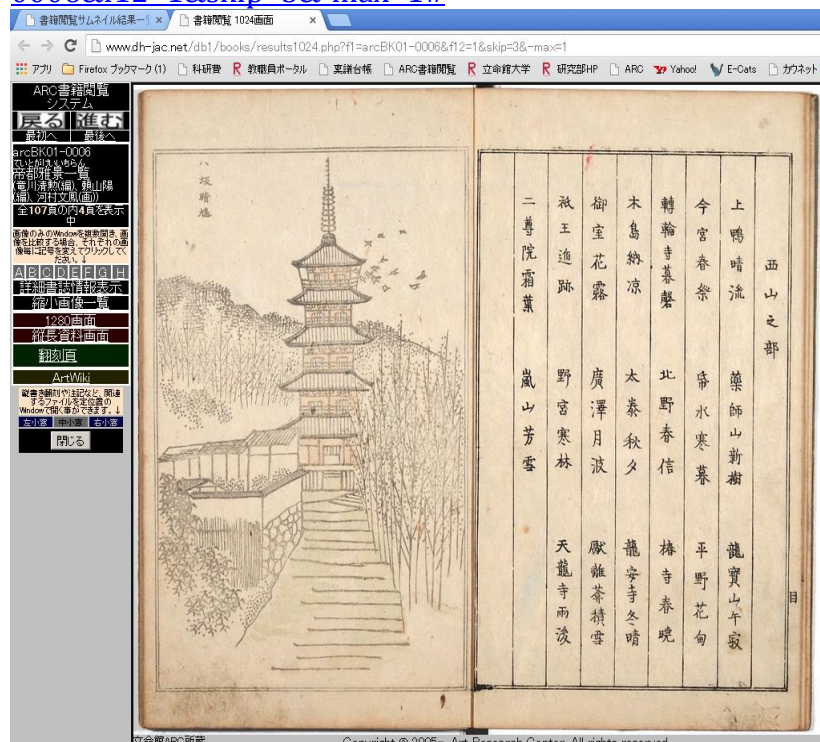 0006&f12=1&skip=3&-max=1#
書籍閲覧サムネイル結果一覧
書籍閲覧 1024画面
www.dh-jac.net/db1/books/results1024.php?f1=arcBK01-0006&f12=1&skip=3&-max=1
アプリ Firefox ブックマーク (1) 科研費 教職員ポータル 稟議台帳 ARC書籍閲覧 立命館大学 研究部HP ARC Yahoo! E-Cats ガウネット
ARC書籍閲覧
システム
戻る 進む
最初へ 最後へ
arcBK01-0006
ていとがけいいちらん
帝都雅景一覧
(竜川清勲(編)、頼山陽
(編)、河村文鳳(画))
全107頁の内4頁を表示
中
画像のみのWindowを複数開き、画
像を比較する場合、それぞれの画
像毎に記号を変えてクリックしてく
ださい。↓
A B C D E F G H
詳細書誌情報表示
縮小画像一覧
1280画面
縦長資料画面
翻刻頁
ArtWiki
縦書き翻刻や注記など、関連
するファイルを定位置の
Windowで開く事ができます。↓
左小窓 中小窓 右小窓
閉じる
西山之部
上鴨晴流 藥師山新樹 龍寶山午寂
今宮春祭 帋水寒暮 平野花甸
轉輪寺暮磬 北野春信 椿寺春曉
木島納凉 太秦秋夕 龍安寺冬晴
御室花露 廣澤月波 厭離菴積雪
祇王遁跡 野宮寒林 天龍寺雨後
二尊院霜葉 嵐山芳雪
目
八坂晴爐
立命館ARC所蔵
Copyright © 2005- Art Research Center. All rights reserved